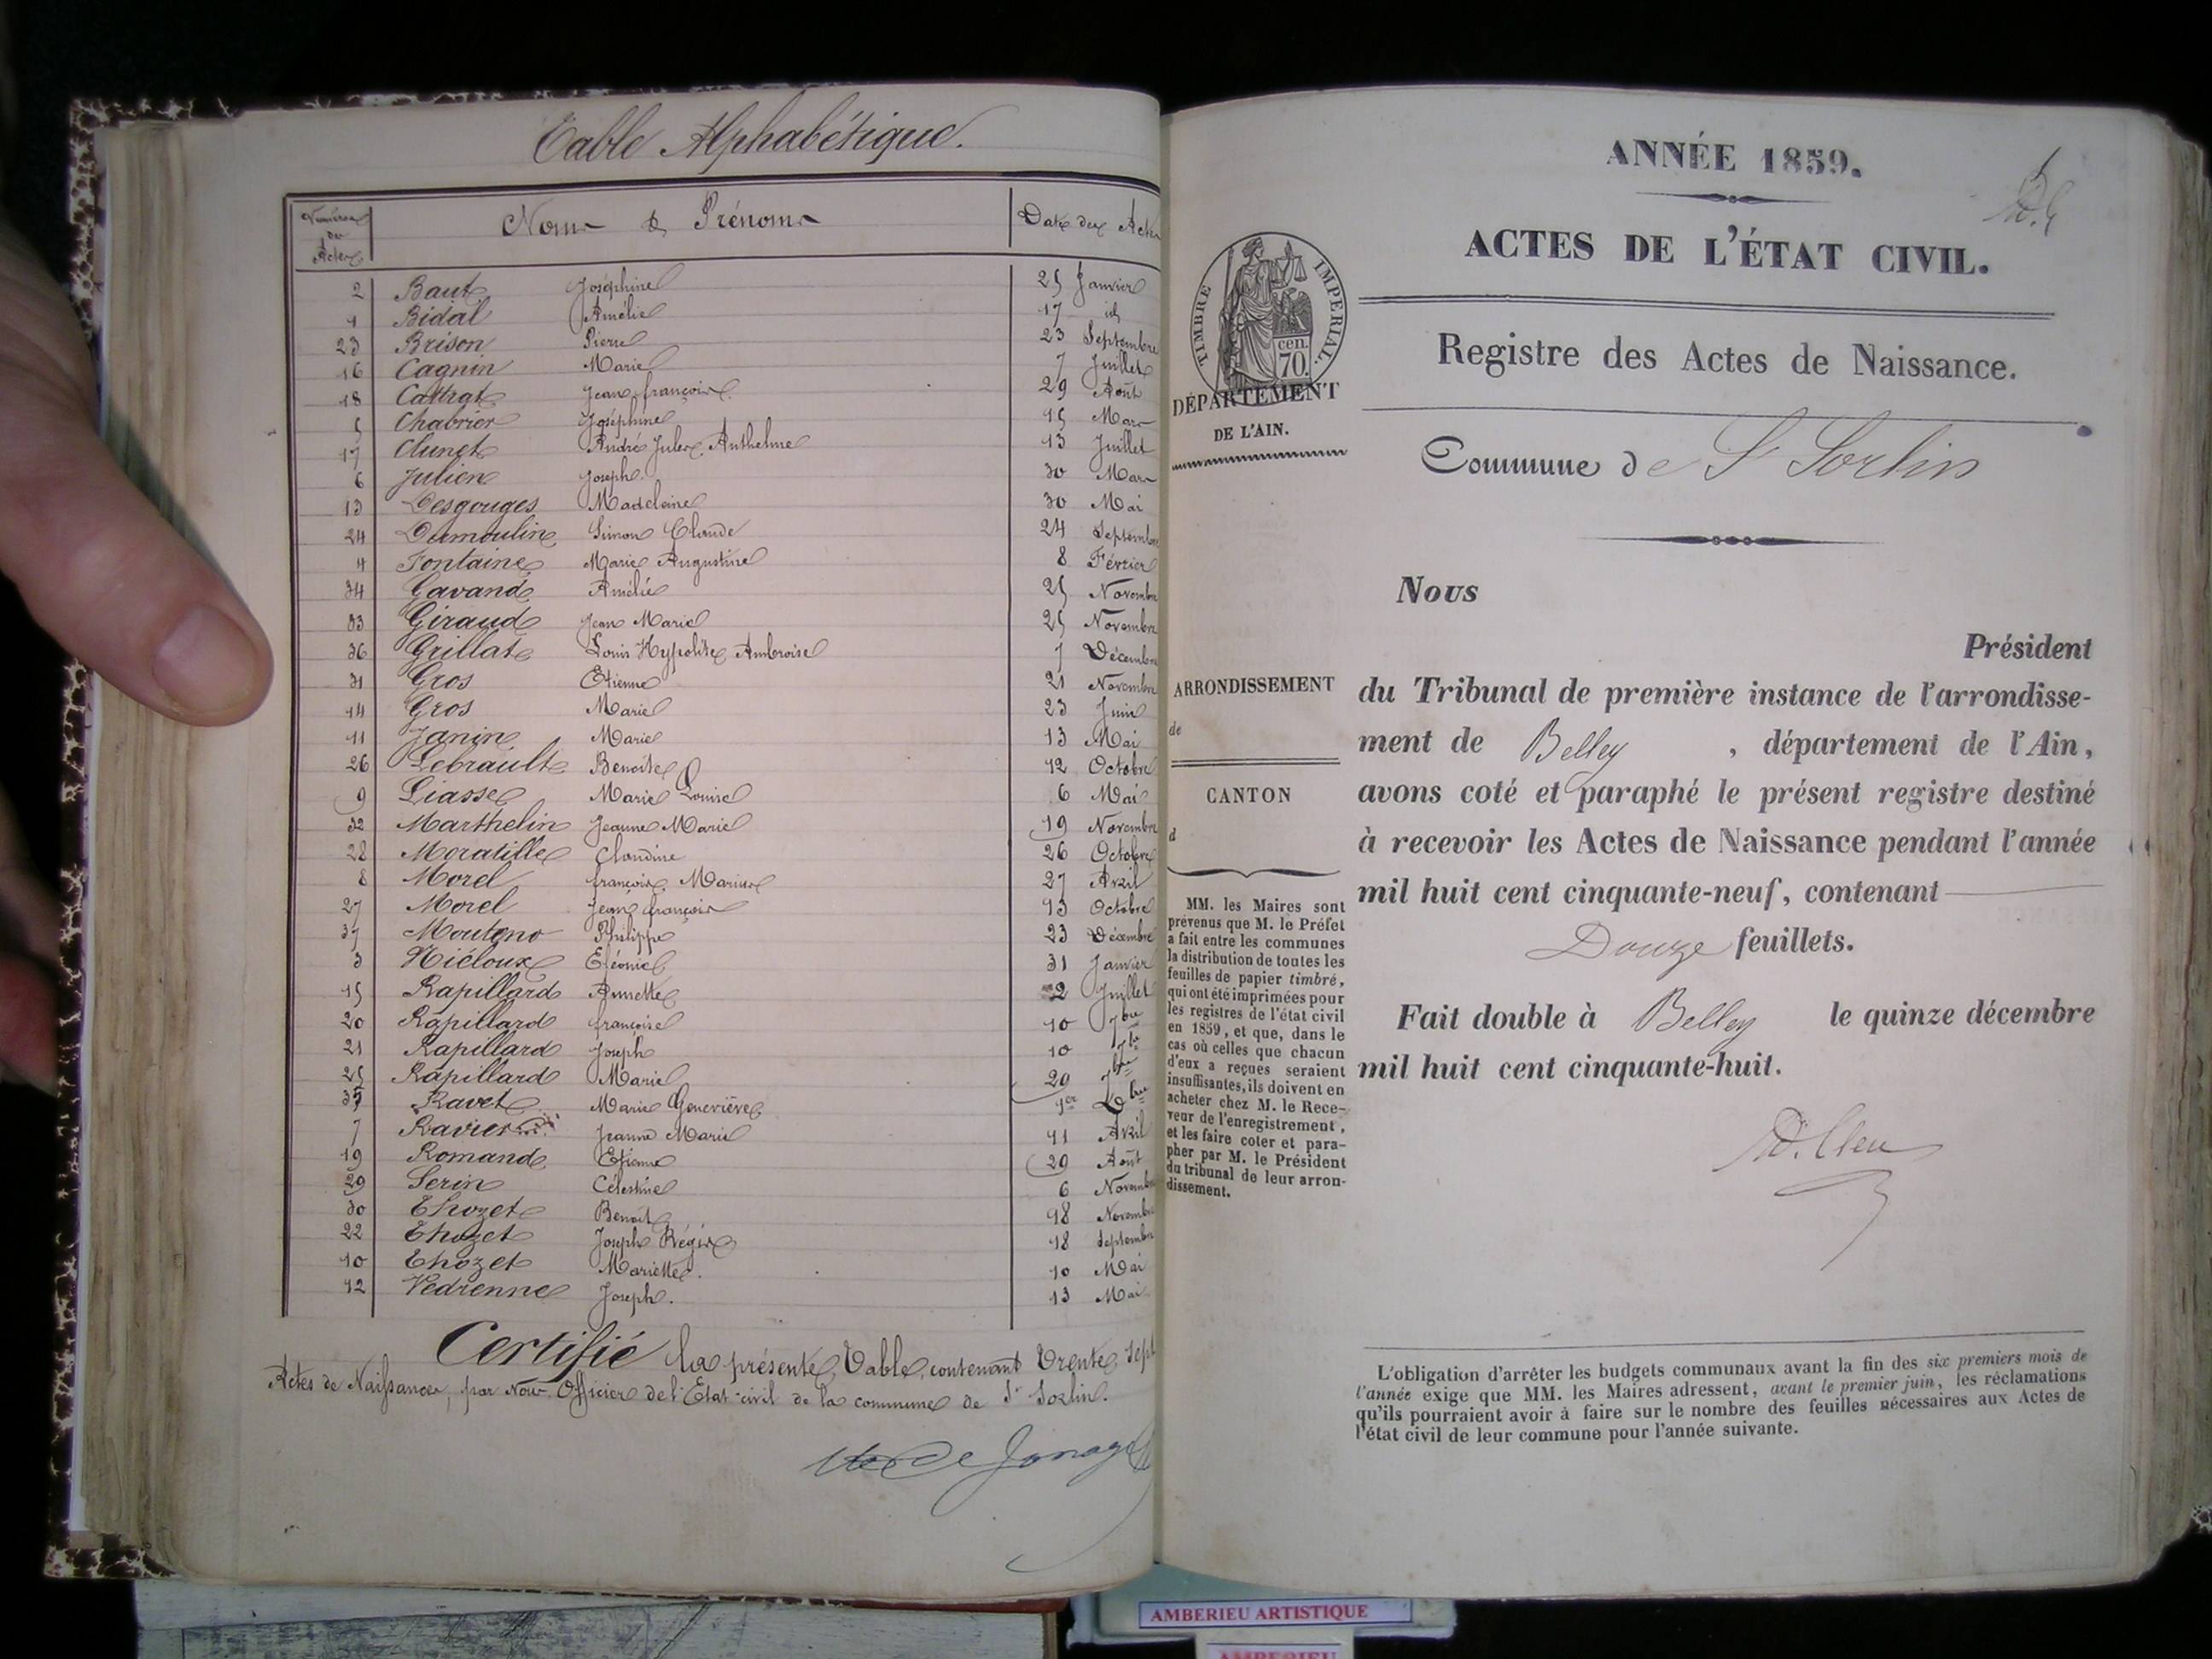 Table Alphabétique.
Numéros des Actes Noms & Prénoms Date des Actes
2 Baut Joséphine 25 Janvier
1 Bidal Amélie 17 id
23 Brison Pierre 23 Septembre
16 Cagnin Marie 7 Juillet
18 Cattrat Jean françois 29 Août
5 Chabrier Joséphine 15 Mars
17 Clunet André Jules Anthelme 13 Juillet
6 Julien Joseph 30 Mars
13 Desgouges Madeleine 30 Mai
24 Dumoulin Simon Claude 24 Septembre
4 Fontaine Marie Augustine 8 Février
34 Gavand Amélie 25 Novembre
33 Giraud Jean Marie 25 Novembre
36 Grillat Louis Hypolite Ambroise 7 Décembre
31 Gros Etienne 21 Novembre
14 Gros Marie 23 Juin
11 Janin Marie 13 Mai
26 Lebrault Benoite 12 Octobre
9 Liasse Marie Louise 6 Mai
32 Marthelin Jeanne Marie 19 Novembre
28 Moratille Claudine 26 Octobre
8 Morel françois Marius 27 Avril
27 Morel Jean françois 13 Octobre
37 Mouteno Philippe 23 Décembre
3 Niéloux Eléonie 31 Janvier
15 Rapillard Annette 2 Juillet
20 Rapillard françoise 10 7bre
21 Rapillard Joseph 10 7bre
25 Rapillard Marie 29 7bre
35 Ravet Marie Geneviève 1er Xbre
7 Ravier Jeanne Marie 11 Avril
19 Romand Etienne 29 Août
29 Serin Célestine 6 Novembre
30 Thozet Benoit 18 Novembre
22 Thozet Joseph Régis 18 Septembre
10 Thozet Mariette. 10 Mai
12 Vedrenne Joseph. 13 Mai
Certifié la présente Table, contenant Trente Sept
Actes de Naissances, par Nous Officier de l'Etat-civil de la commune de St Sorlin.
ANNÉE 1859.
ACTES DE L'ÉTAT CIVIL.
TIMBRE IMPERIAL.
cen.
70.
Registre des Actes de Naissance.
DÉPARTEMENT
DE L'AIN.
Commune de St Sorlin
Nous
Président
ARRONDISSEMENT
de
du Tribunal de première instance de l'arrondisse-
ment de Belley, département de l'Ain,
CANTON
d
avons coté et paraphé le présent registre destiné
à recevoir les Actes de Naissance pendant l'année
mil huit cent cinquante-neuf, contenant
Douze feuillets.
MM. les Maires sont
prévenus que M. le Préfet
a fait entre les communes
la distribution de toutes les
feuilles de papier timbré,
qui ont été imprimées pour
les registres de l'état civil
en 1859, et que, dans le
cas où celles que chacun
d'eux a reçues seraient
insuffisantes, ils doivent en
acheter chez M. le Rece-
veur de l'enregistrement,
et les faire coter et para-
pher par M. le Président
du tribunal de leur arron-
dissement.
Fait double à Belley le quinze décembre
mil huit cent cinquante-huit.
L'obligation d'arrêter les budgets communaux avant la fin des six premiers mois de
l'année exige que MM. les Maires adressent, avant le premier juin, les réclamations
qu'ils pourraient avoir à faire sur le nombre des feuilles nécessaires aux Actes de
l'état civil de leur commune pour l'année suivante.
AMBERIEU ARTISTIQUE
AMBERIEU